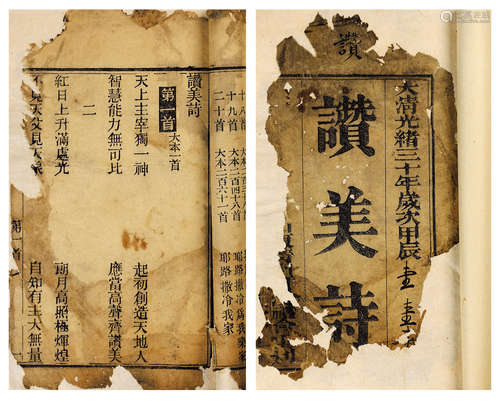 讚
大清光緒三十年歲次甲辰
讚美詩
十八首
十九首 大本二百四十八首
二十首 大本二百六十一首 耶路撒冷我家
讚美詩
第一首 大本一首
天上主宰獨一神 起初創造天地人
智慧能力無可比 應當高聲齊讚美
二
紅日上升滿處光 朗月高照極輝煌
自知有主大無量
第一首